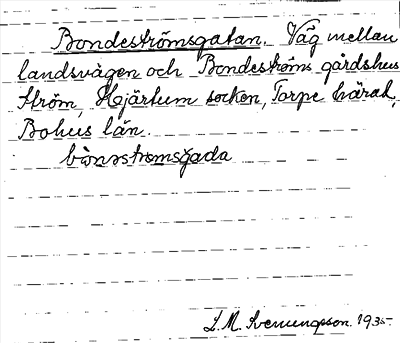 Bondeströmsgatan. Väg mellan
landsvägen och Bondeströms gårdshus
Ström, Hjärtum socken, Torpe härad,
Bohus län.
bònnstromsgada
L. M. Svenungsson. 1935.